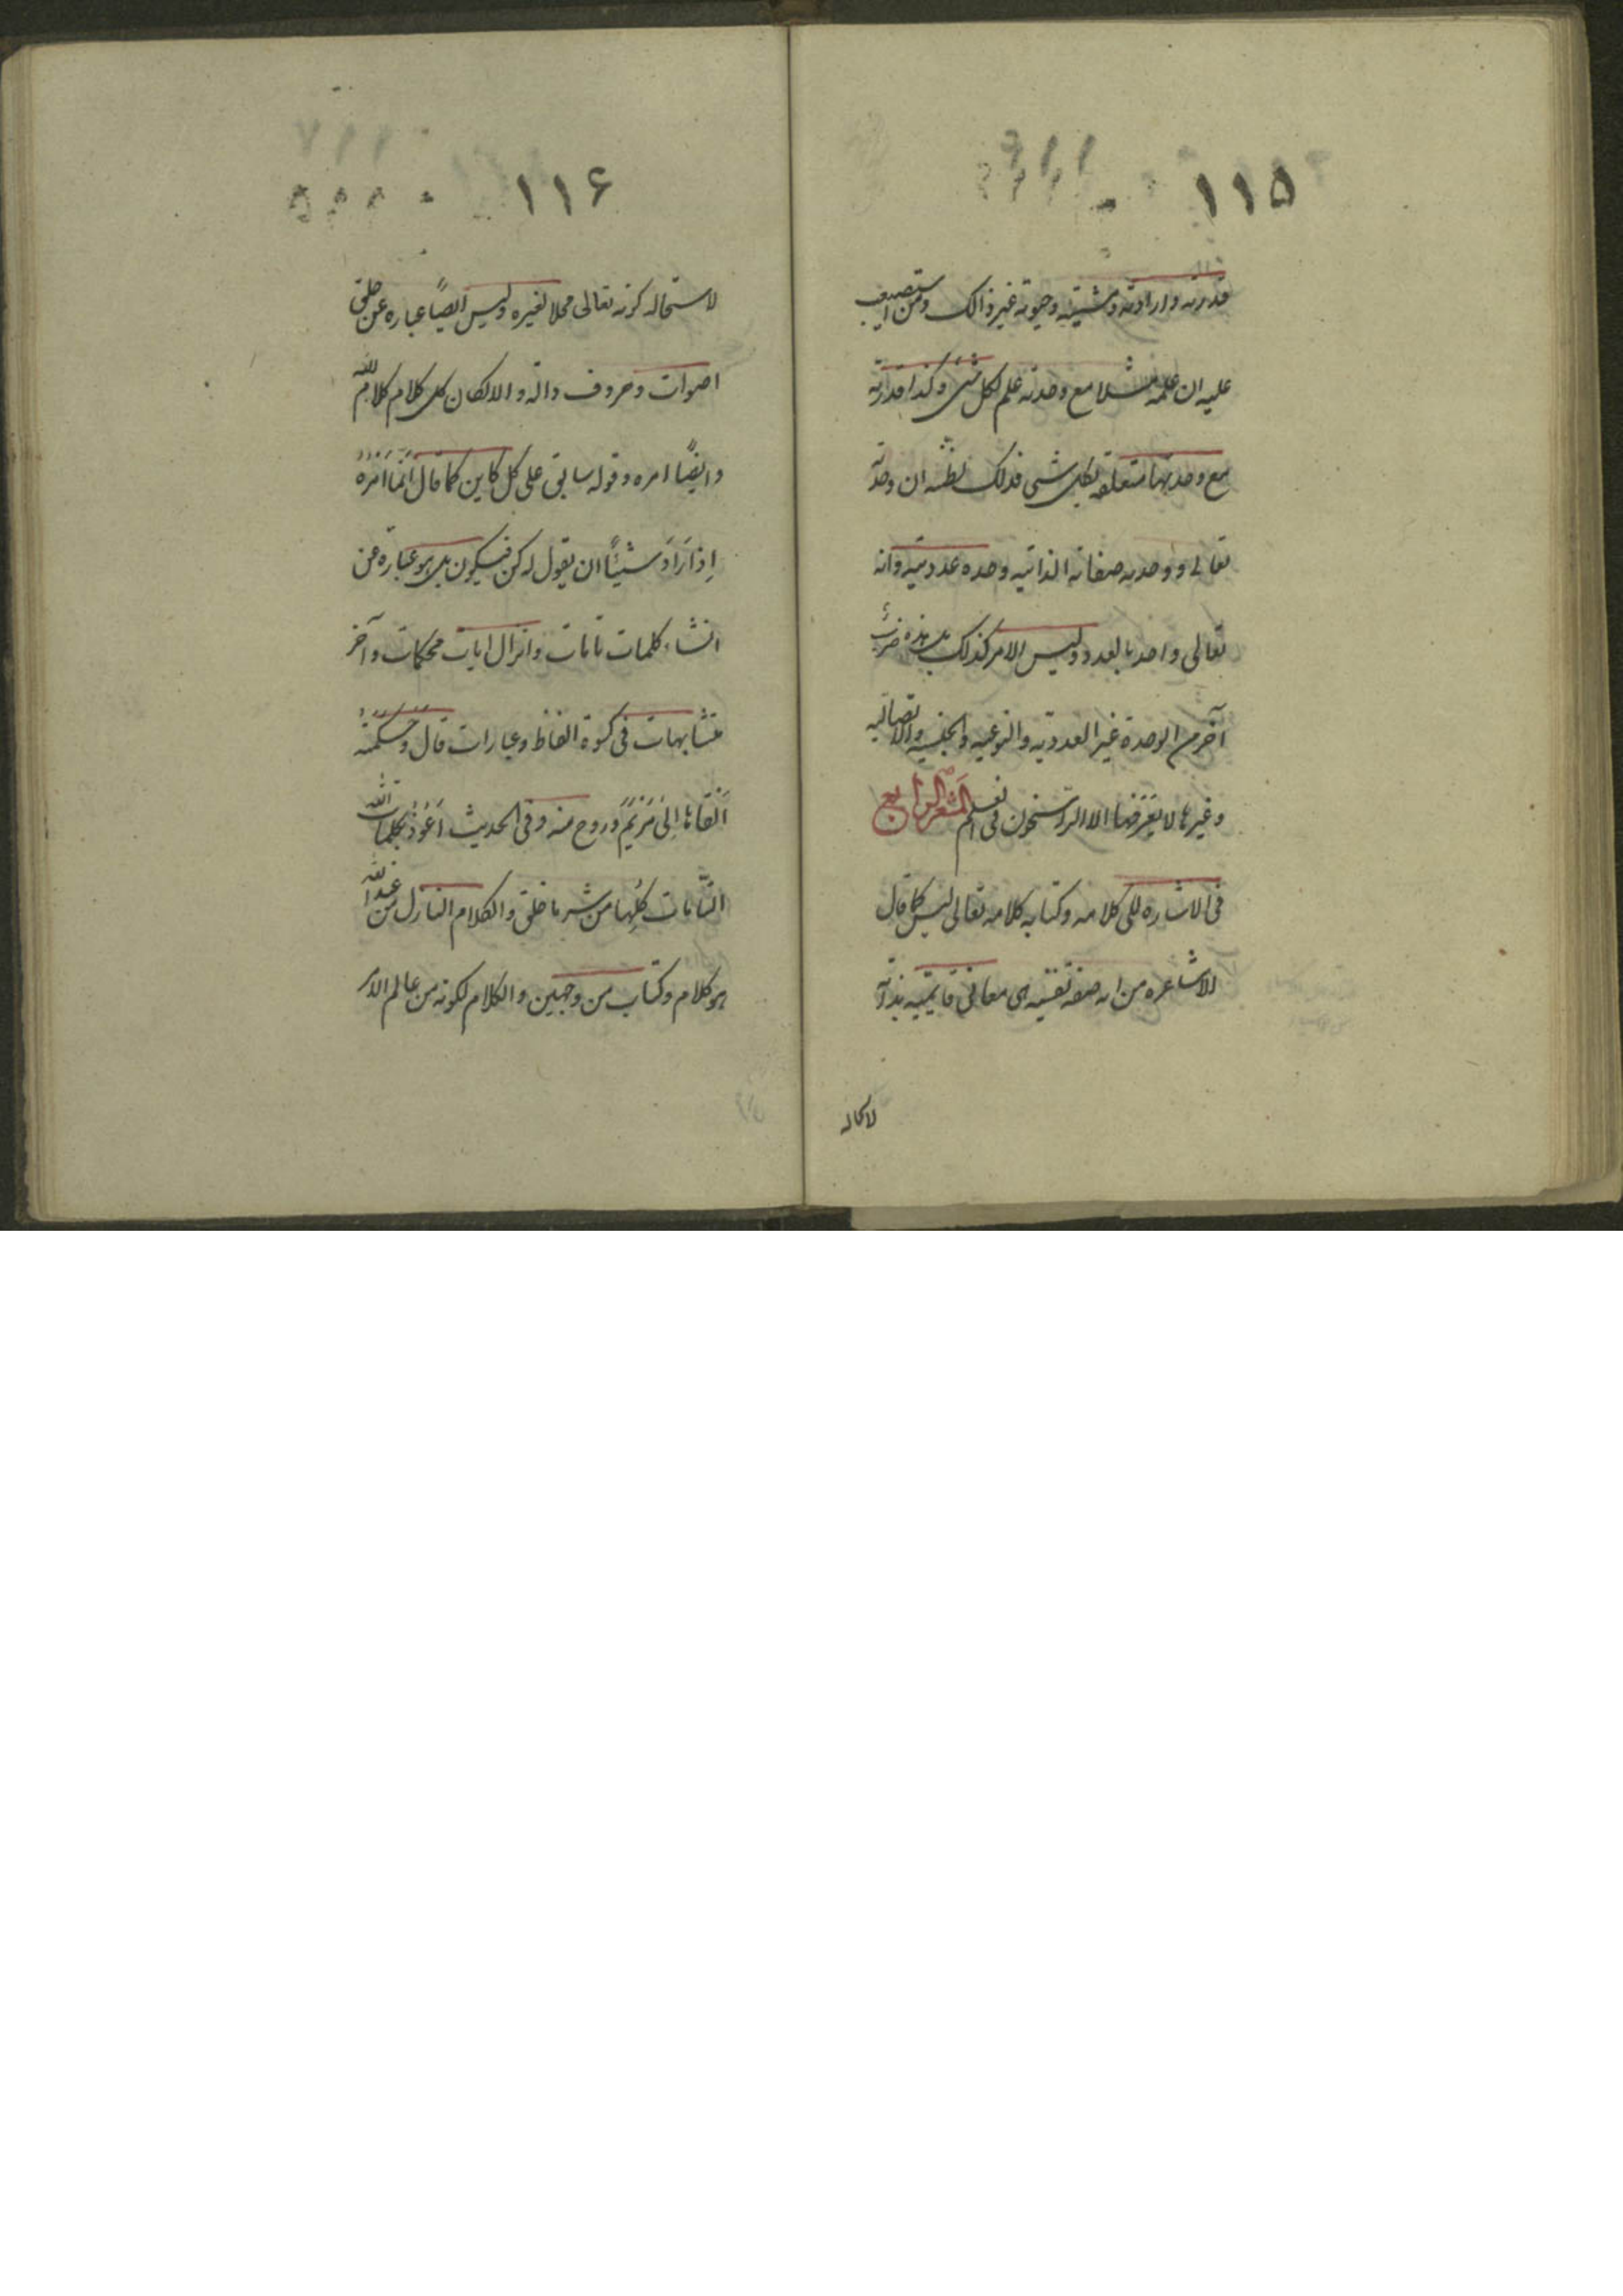 ۱۱۵
قدرته وارادته ومشيته وحيوته غير ذالك ومن استصعب
عليه ان علمه مثلا مع وحدته علم لكل شئ وكذا قدرته
مع وحدتها متعلقه بكل شى فذلك لظنه ان وحدته
تعالى ووحديه صفاته الذاتيه وحده عدديه وانه
تعالى واحد بالعدد وليس الامر كذلك بل هذه ضرب
آخر من الوحدة غير العدديه والنوعيه والجنسيه والاتصاليه
وغيرها لا يعرفها الا الراسخون فى العلم المشعر الرابع
فى الاشاره الى كلامه وكتابه كلامه تعالى ليس كما قال
الاشاعره من انه صفه نفسيه هى معانى قايميه بذاته
۱۱۶
لاستحاله كونه تعالى محلا لغيره وليس ايضاً عباره عن خلق
اصوات وحروف داله والا لكان كل كلام كلام الله
وايضاً امره وقوله سابق على كل كاين كما قال اِنَّما اَمْرُهُ
اِذا اَرادَ شَيْئاً ان يقول له كن فيكون بل هو عبارة عن
انشاء كلمات تامات وانزال ايات محكمات وآخر
متشابهات فى كسوة الفاظ وعبارات قال وَكَلِمَتُهُ
اَلْقاها اِلى مَرْيَمَ وروح منه وفى الحديث اَعُوذُ بكلمات الله
التّامات كُلِّها من شر ما خلق والكلام النازل من عند الله
هو كلام وكتاب من وجهين والكلام لكونه من عالم الامر